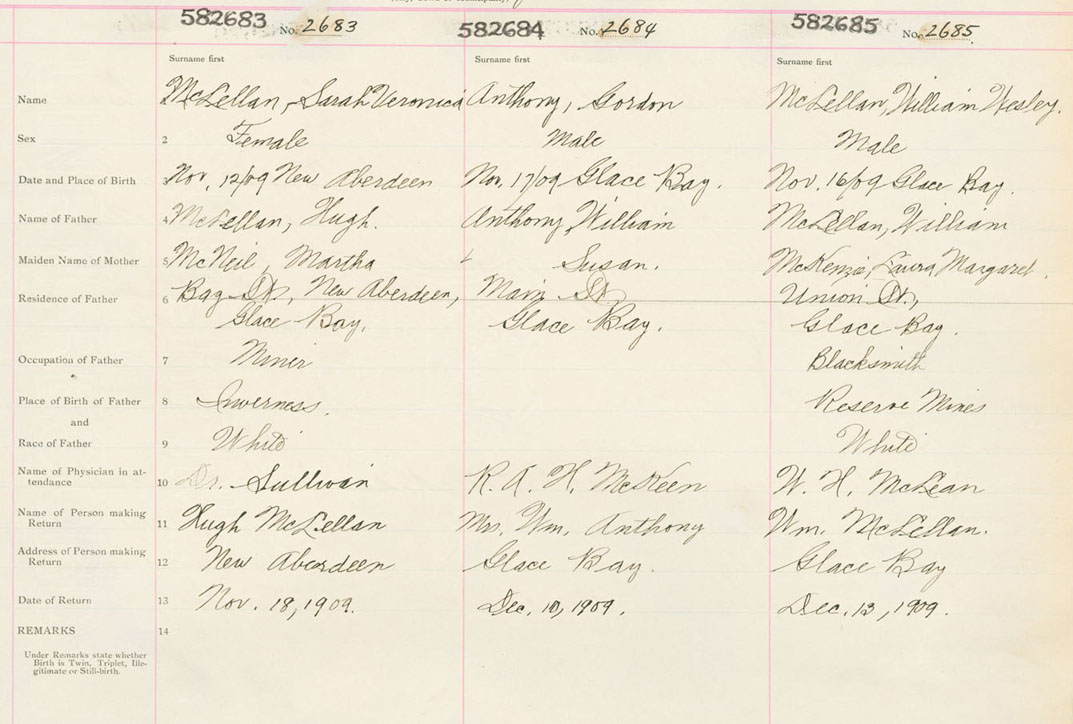 582683 No. 2683 582684 No. 2684 582685 No. 2685
Surname first Surname first Surname first
Name McLellan, Sarah Veronica Anthony, Gordon McLellan, William Wesley.
Sex 2 Female Male Male
Date and Place of Birth 3 Nov. 12/09 New Aberdeen Nov. 17/09 Glace Bay. Nov. 16/09 Glace Bay.
Name of Father 4 McLellan, Hugh. Anthony, William McLellan, William
Maiden Name of Mother 5 McNeil, Martha Susan. McKenzie, Laura Margaret.
Residence of Father 6 Bay St., New Aberdeen, Main St. Union St.,
Glace Bay. Glace Bay. Glace Bay.
Occupation of Father 7 Miner Blacksmith
Place of Birth of Father 8 Inverness. Reserve Mines
and
Race of Father 9 White White
Name of Physician in at-
tendance 10 Dr. Sullivan R. A. H. McKeen W. H. McLean
Name of Person making
Return 11 Hugh McLellan Mrs. Wm. Anthony Wm. McLellan.
Address of Person making
Return 12 New Aberdeen Glace Bay. Glace Bay
Date of Return 13 Nov. 18, 1909. Dec. 10, 1909. Dec. 13, 1909.
REMARKS 14
Under Remarks state whether
Birth is Twin, Triplet, Ille-
gitimate or Still-birth.